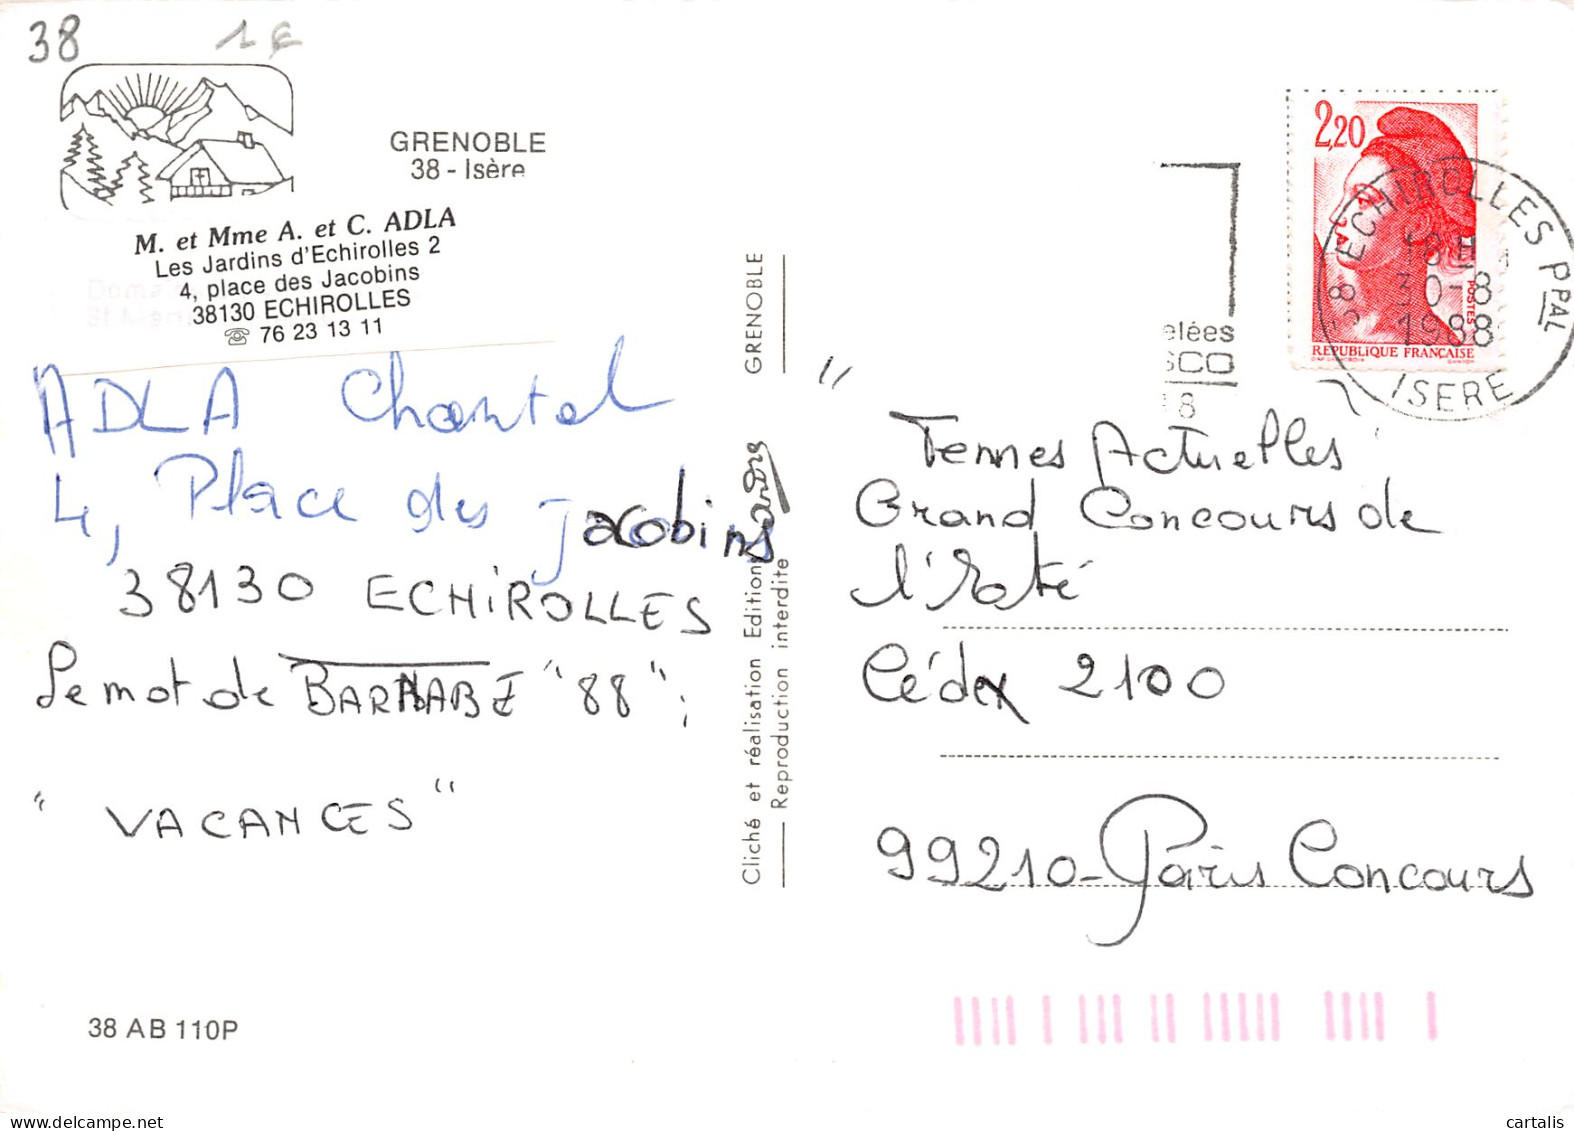 38 1 €
GRENOBLE
38 - Isère
M. et Mme A. et C. ADLA
Les Jardins d'Echirolles 2
4, place des Jacobins
38130 ECHIROLLES
☏ 76 23 13 11
ADLA Chantal
4, Place des jacobins
38130 ECHIROLLES
Le mot de BARNABE "88" :
" VACANCES "
38 AB 110P
GRENOBLE
Cliché et réalisation Editions andré
Reproduction interdite
elées
SCO
18
2,20
POSTES
REPUBLIQUE FRANÇAISE
38 ECHIROLLES PPAL
18 H
30-8
1988
ISERE
" Femmes Actuelles "
Grand Concours de
l'Eté
Cédex 2100
99210-Paris Concours
cartalis www.delcampe.net